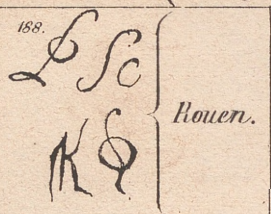 188.
Sc
K
Rouen.